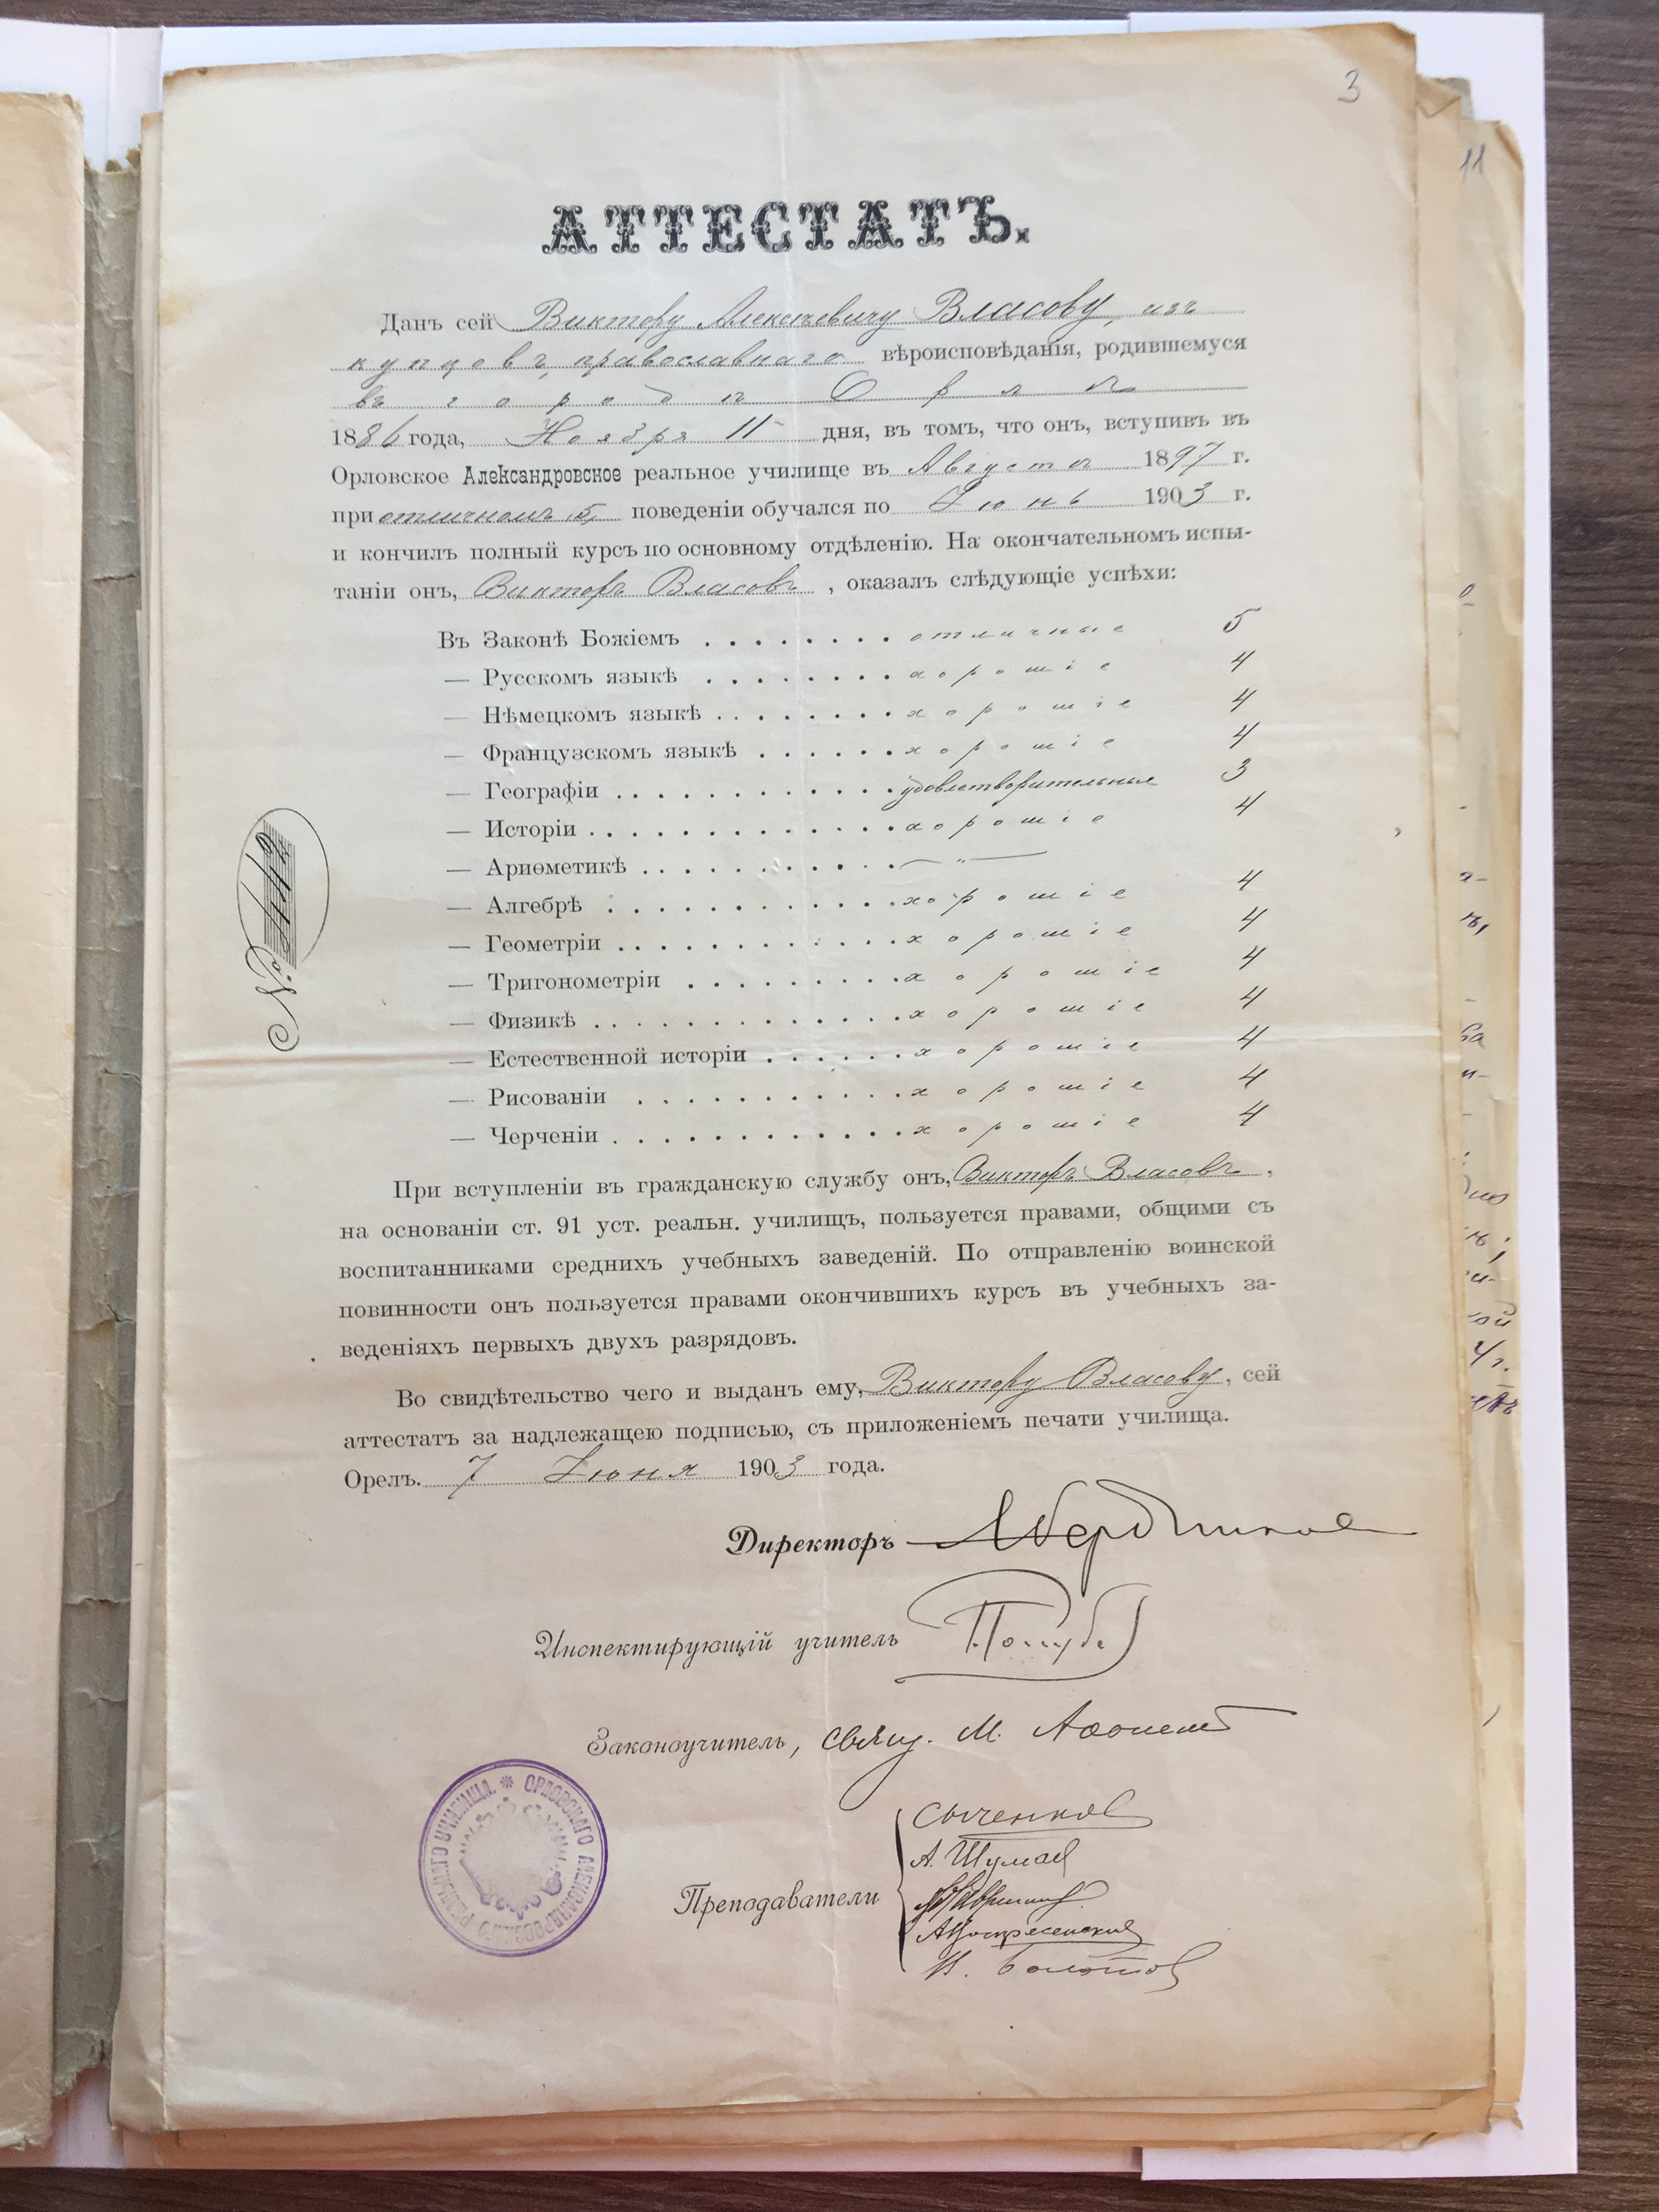 3
11
АТТЕСТАТЪ.
Данъ сей Виктору Алексѣевичу Власову, изъ
купцовъ, православнаго вѣроисповѣданія, родившемуся
въ городѣ Орлѣ
1886 года, Ноября 11 дня, въ томъ, что онъ, вступивъ въ
Орловское Александровское реальное училище въ Августѣ 1897 г.
при отличномъ 5, поведеніи обучался по Іюнь 1903 г.
и кончилъ полный курсъ по основному отдѣленію. На окончательномъ испы-
таніи онъ, Викторъ Власовъ, оказалъ слѣдующіе успѣхи:
Въ Законѣ Божіемъ . . . . . . . . отличные 5
— Русскомъ языкѣ . . . . . . . . хорошіе 4
— Нѣмецкомъ языкѣ . . . . . . . . хорошіе 4
— Французскомъ языкѣ . . . . . . хорошіе 4
— Географіи . . . . . . . . . . . . удовлетворительные 3
— Исторіи . . . . . . . . . . . . . хорошіе 4
— Ариѳметикѣ . . . . . . . . . . . — " —
— Алгебрѣ . . . . . . . . . . . . хорошіе 4
— Геометріи . . . . . . . . . . . . хорошіе 4
— Тригонометріи . . . . . . . . . хорошіе 4
— Физикѣ . . . . . . . . . . . . . хорошіе 4
— Естественной исторіи . . . . . . хорошіе 4
— Рисованіи . . . . . . . . . . . хорошіе 4
— Черченіи . . . . . . . . . . . . хорошіе 4
№
При вступленіи въ гражданскую службу онъ, Викторъ Власовъ,
на основаніи ст. 91 уст. реальн. училищъ, пользуется правами, общими съ
воспитанниками среднихъ учебныхъ заведеній. По отправленію воинской
повинности онъ пользуется правами окончившихъ курсъ въ учебныхъ за-
веденіяхъ первыхъ двухъ разрядовъ.
Во свидѣтельство чего и выданъ ему, Виктору Власову, сей
аттестатъ за надлежащею подписью, съ приложеніемъ печати училища.
Орелъ. 7 Іюня 1903 года.
Директоръ
Инспектирующій учитель
Законоучитель, Свящ. М.
Преподаватели
Сыченков
А. Шумаев
А. Воскресенский
Н. Болотов
ОРЛОВСКАГО АЛЕКСАНДРОВСКАГО РЕАЛЬНАГО УЧИЛИЩА.